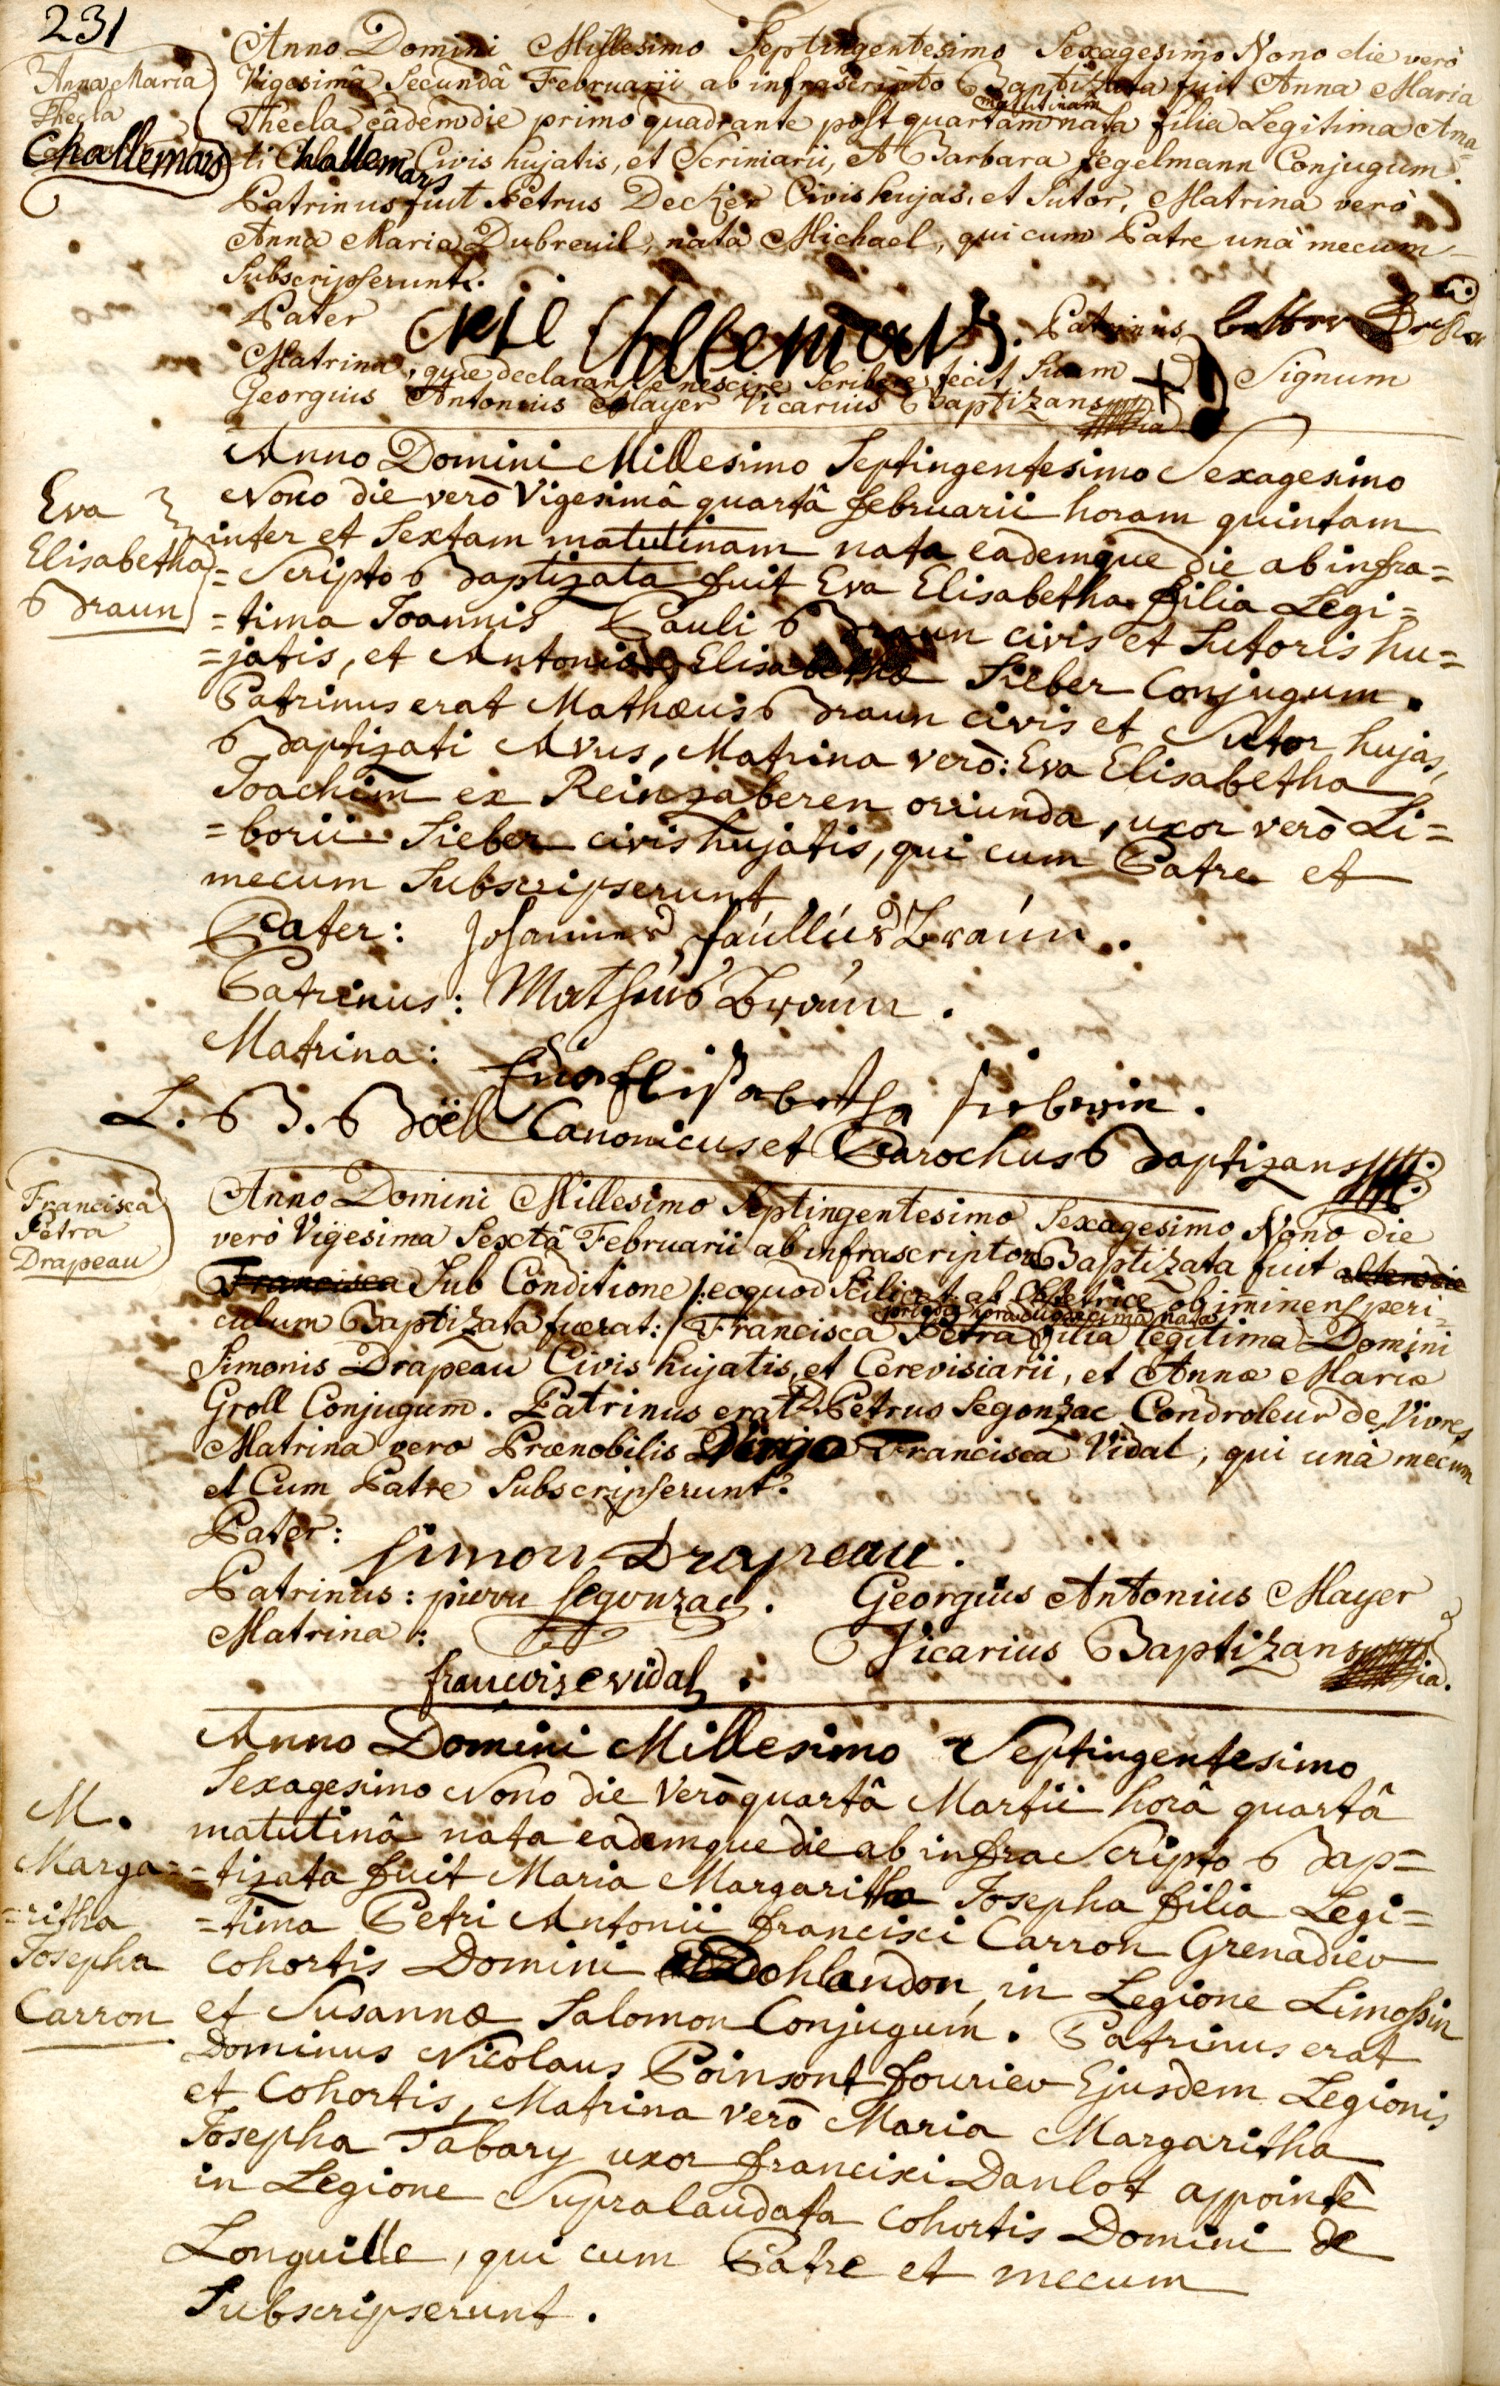 231
Anna Maria
Thecla
Challemars
Anno Domini Millesimo Septingentesimo Sexagesimo Nono die verò
Vigesimâ Secundâ Februarii ab infrascripto Baptizata fuit Anna Maria
Thecla eâdem die primo quadrante post quartam matutinam nata filia Legitima Ama=
ti Challemars Civis hujatis, et Scriniarii, et Barbara Jegelmann Conjugum.
Patrinus fuit Petrus Decker Civis hujas, et Sutor, Matrina verò
Anna Maria Dubreuil, nata Michael, qui cum Patre unà mecum
Subscripserunt.
Pater Challemars. Patrinus
Matrina, quae declarans se nescire scribere, fecit Suum + Signum
Georgius Antonius Mayer Vicarius Baptizans
Eva
Elisabetha
Braun
Anno Domini Millesimo Septingentesimo Sexagesimo
Nono die verò Vigesimâ quartâ februarii horam quintam
inter et Sextam matutinam nata eademque die ab infra=
=Scripto Baptizata fuit Eva Elisabetha filia Legi=
=tima Joannis Pauli Braun civis et Sutoris hu=
=jatis, et Antoniae Elisabethae Sieber Conjugum.
Patrinus erat Mathaeus Braun civis et Sutor hujas,
Baptizati Avus, Matrina verò: Eva Elisabetha
Joachim ex Reinzaberen oriunda, uxor verò Li=
=borii Sieber civis hujatis, qui cum Patre et
mecum Subscripserunt
Pater: Johannes Paullus Braun.
Patrinus: Matheus Braun.
Matrina: Eva Elisabetha Sieberin.
L. B. Böell Canonicus et Parochus Baptizans
Francisca
Petra
Drapeau
Anno Domini Millesimo Septingentesimo Sexagesimo Nono die
verò Vigesima Sextâ Februarii ab infrascripto Baptizata fuit
Francisca Sub Conditione /:eo quod Scilicet ab Obstetrice ob iminens peri=
culum Baptizata fuerat:/ Francisca Petra filia legitima Domini
Simonis Drapeau Civis hujatis, et Cerevisiarii, et Annae Mariae
Groll Conjugum. Patrinus erat D. Petrus Segonzac Condroleur de Vivres,
Matrina vero Praenobilis Virgo Francisca Vidal, qui unà mecum
et Cum Patre Subscripserunt.
Pater: Simon Drapeau.
Patrinus: pierre Segonzac. Georgius Antonius Mayer
Matrina: Vicarius Baptizans
francoise vidal.
M.
Marga=
=ritha
Josepha
Carron
Anno Domini Millesimo Septingentesimo
Sexagesimo Nono die Verò quartâ Martii horâ quartâ
matutinâ nata eademque die ab infra Scripto Bap=
=tizata fuit Maria Margaritha Josepha filia Legi=
=tima Petri Antonii francisci Carron Grenadier
Cohortis Domini Dohlandon, in Legione Limossin
et Susannae Salomon Conjugum. Patrinus erat
Dominus Nicolaus Poinsont fourier Ejusdem Legionis
et Cohortis, Matrina verò Maria Margaritha
Josepha Tabary uxor francisci Danlot appointè
in Legione Supralaudata Cohortis Domini de
Longuille, qui cum Patre et mecum
Subscripserunt.